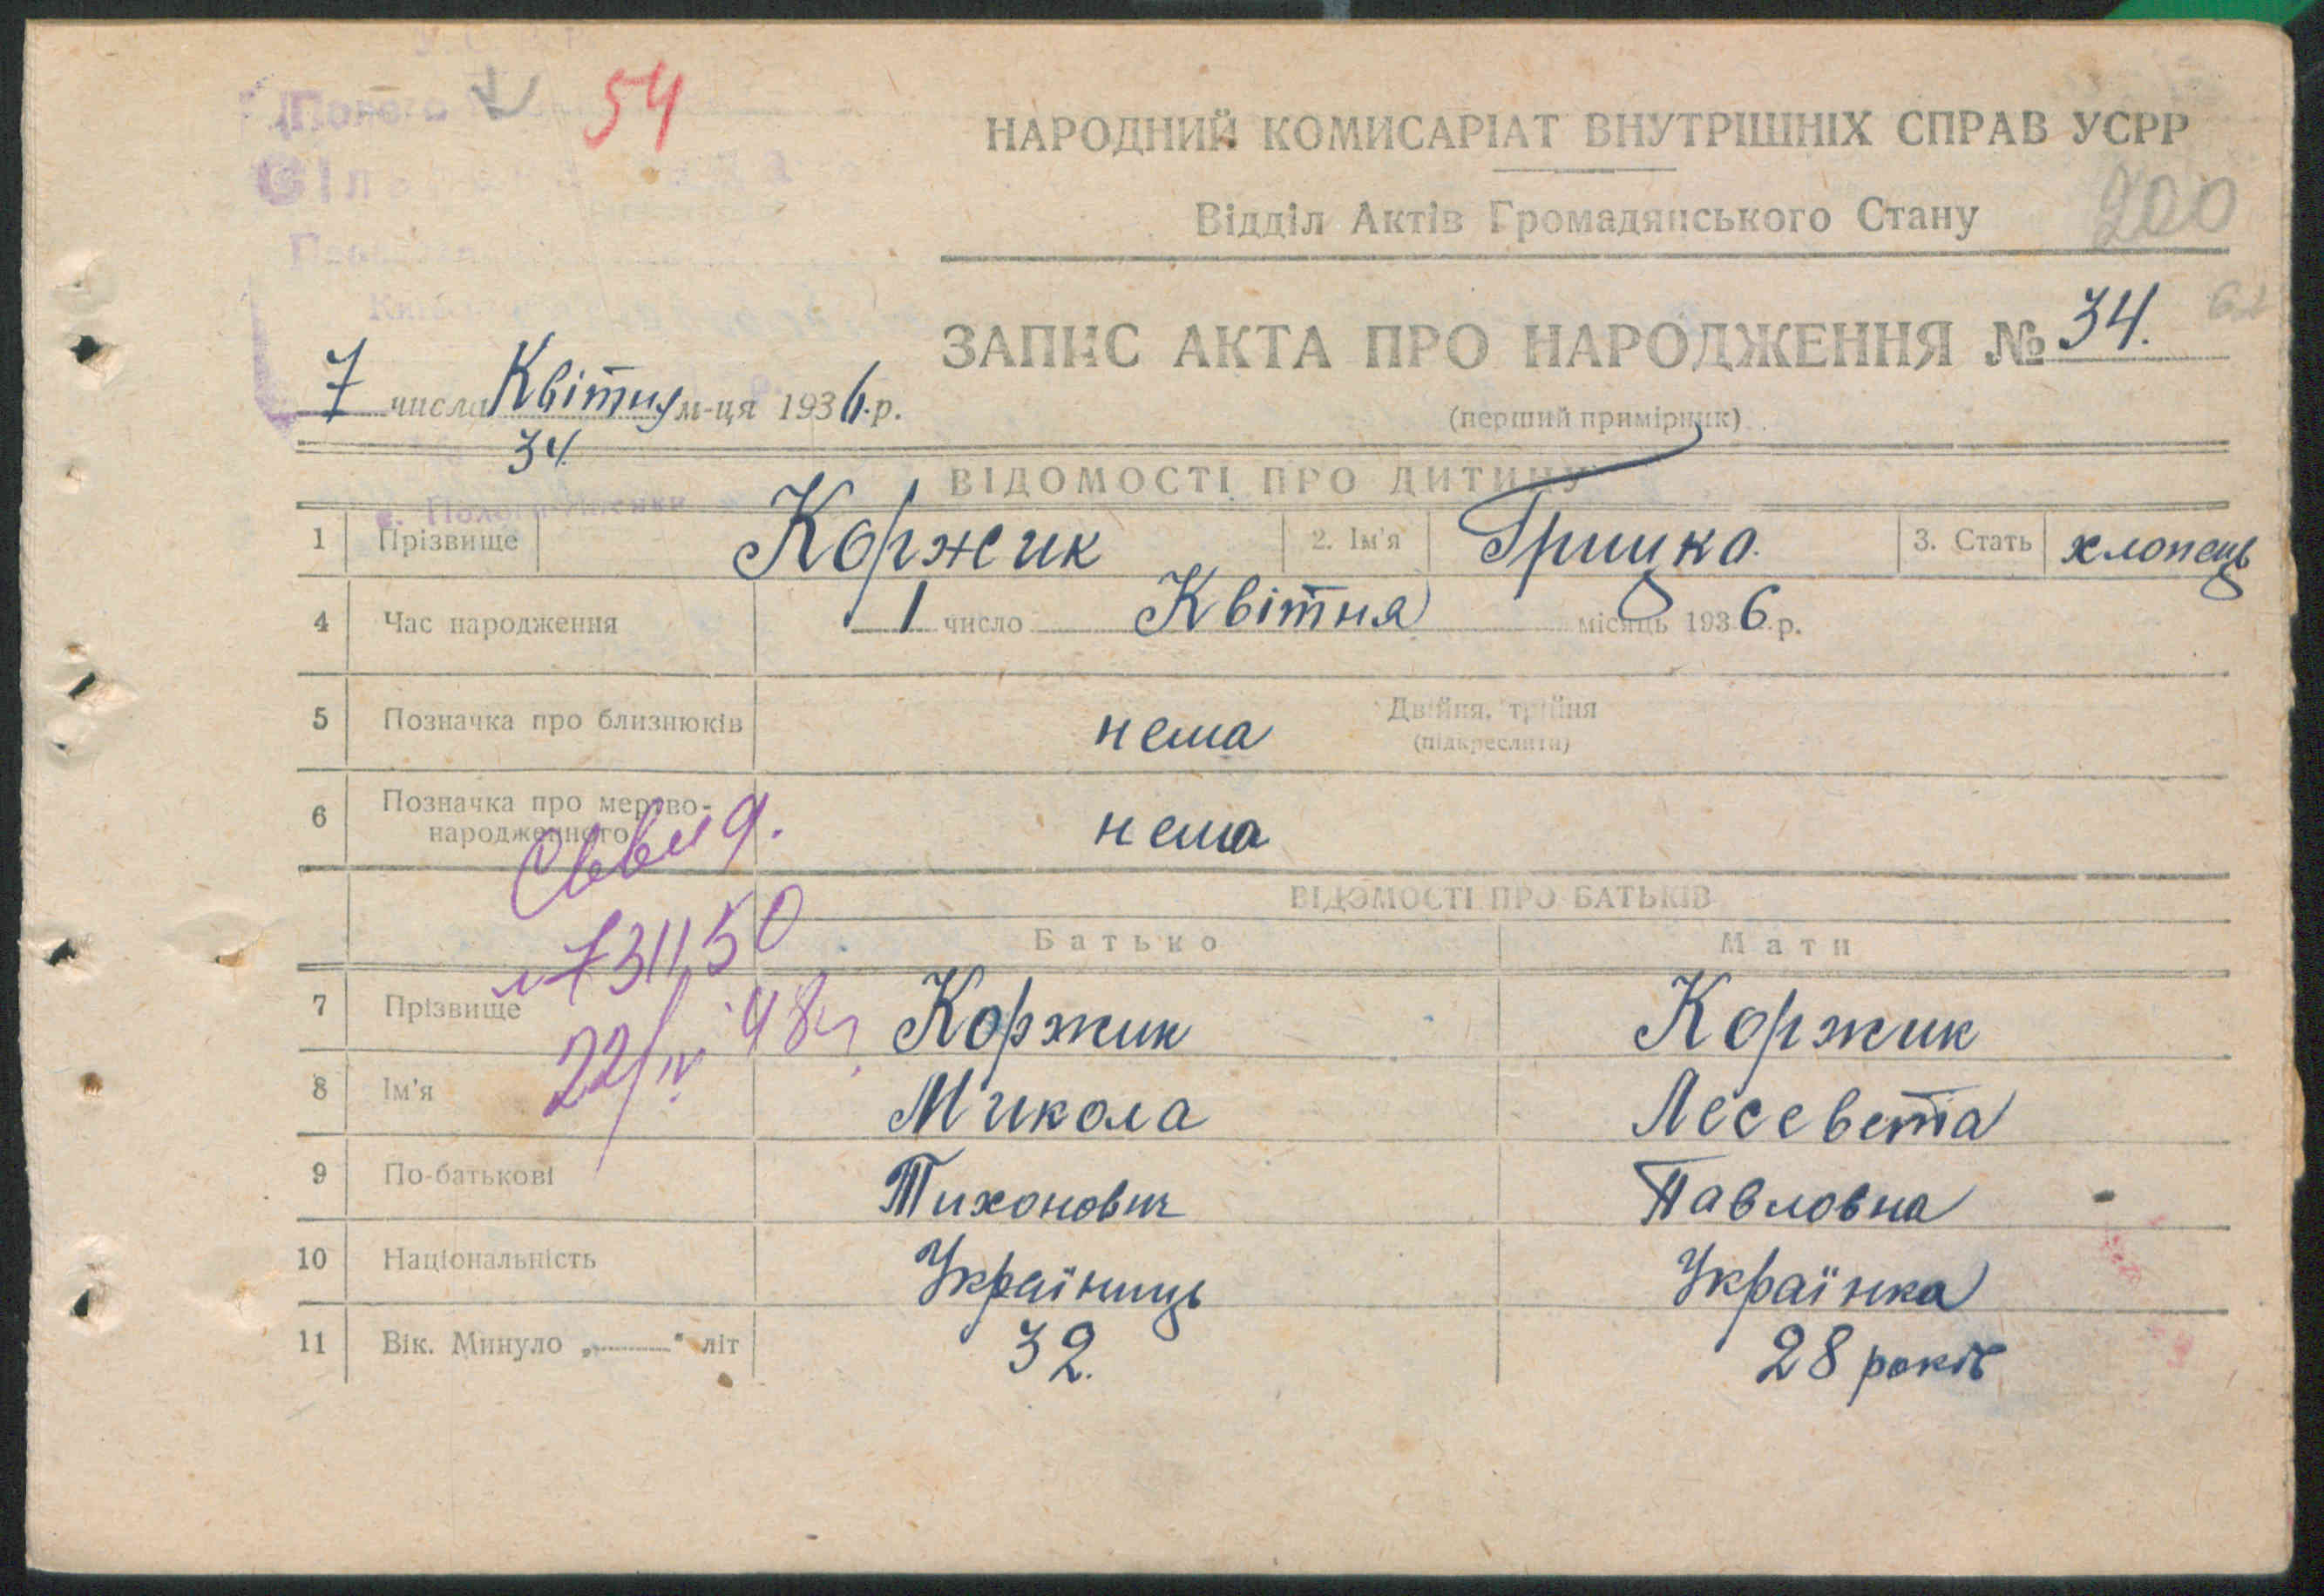 54
НАРОДНИЙ КОМИСАРІАТ ВНУТРІШНІХ СПРАВ УСРР
Відділ Актів Громадянського Стану
200
ЗАПИС АКТА ПРО НАРОДЖЕННЯ № 34.
7 числа Квітня м-ця 1936 р.
(перший примірник)
34.
ВІДОМОСТІ ПРО ДИТИНУ
1 Прізвище Коржик 2. Ім'я Грицко. 3. Стать хлопець
4 Час народження 1 число Квітня місяць 1936 р.
5 Позначка про близнюків нема Двійня, трійня
(підкреслити)
6 Позначка про мертво-
народженного нема
ВІДОМОСТІ ПРО БАТЬКІВ
Батько Мати
731150
7 Прізвище Коржик Коржик
22/IV 48
8 Ім'я Микола Лесевета
9 По-батькові Тихонович Павловна
10 Національність Україниць Українка
11 Вік. Минуло „ " літ 32. 28 років